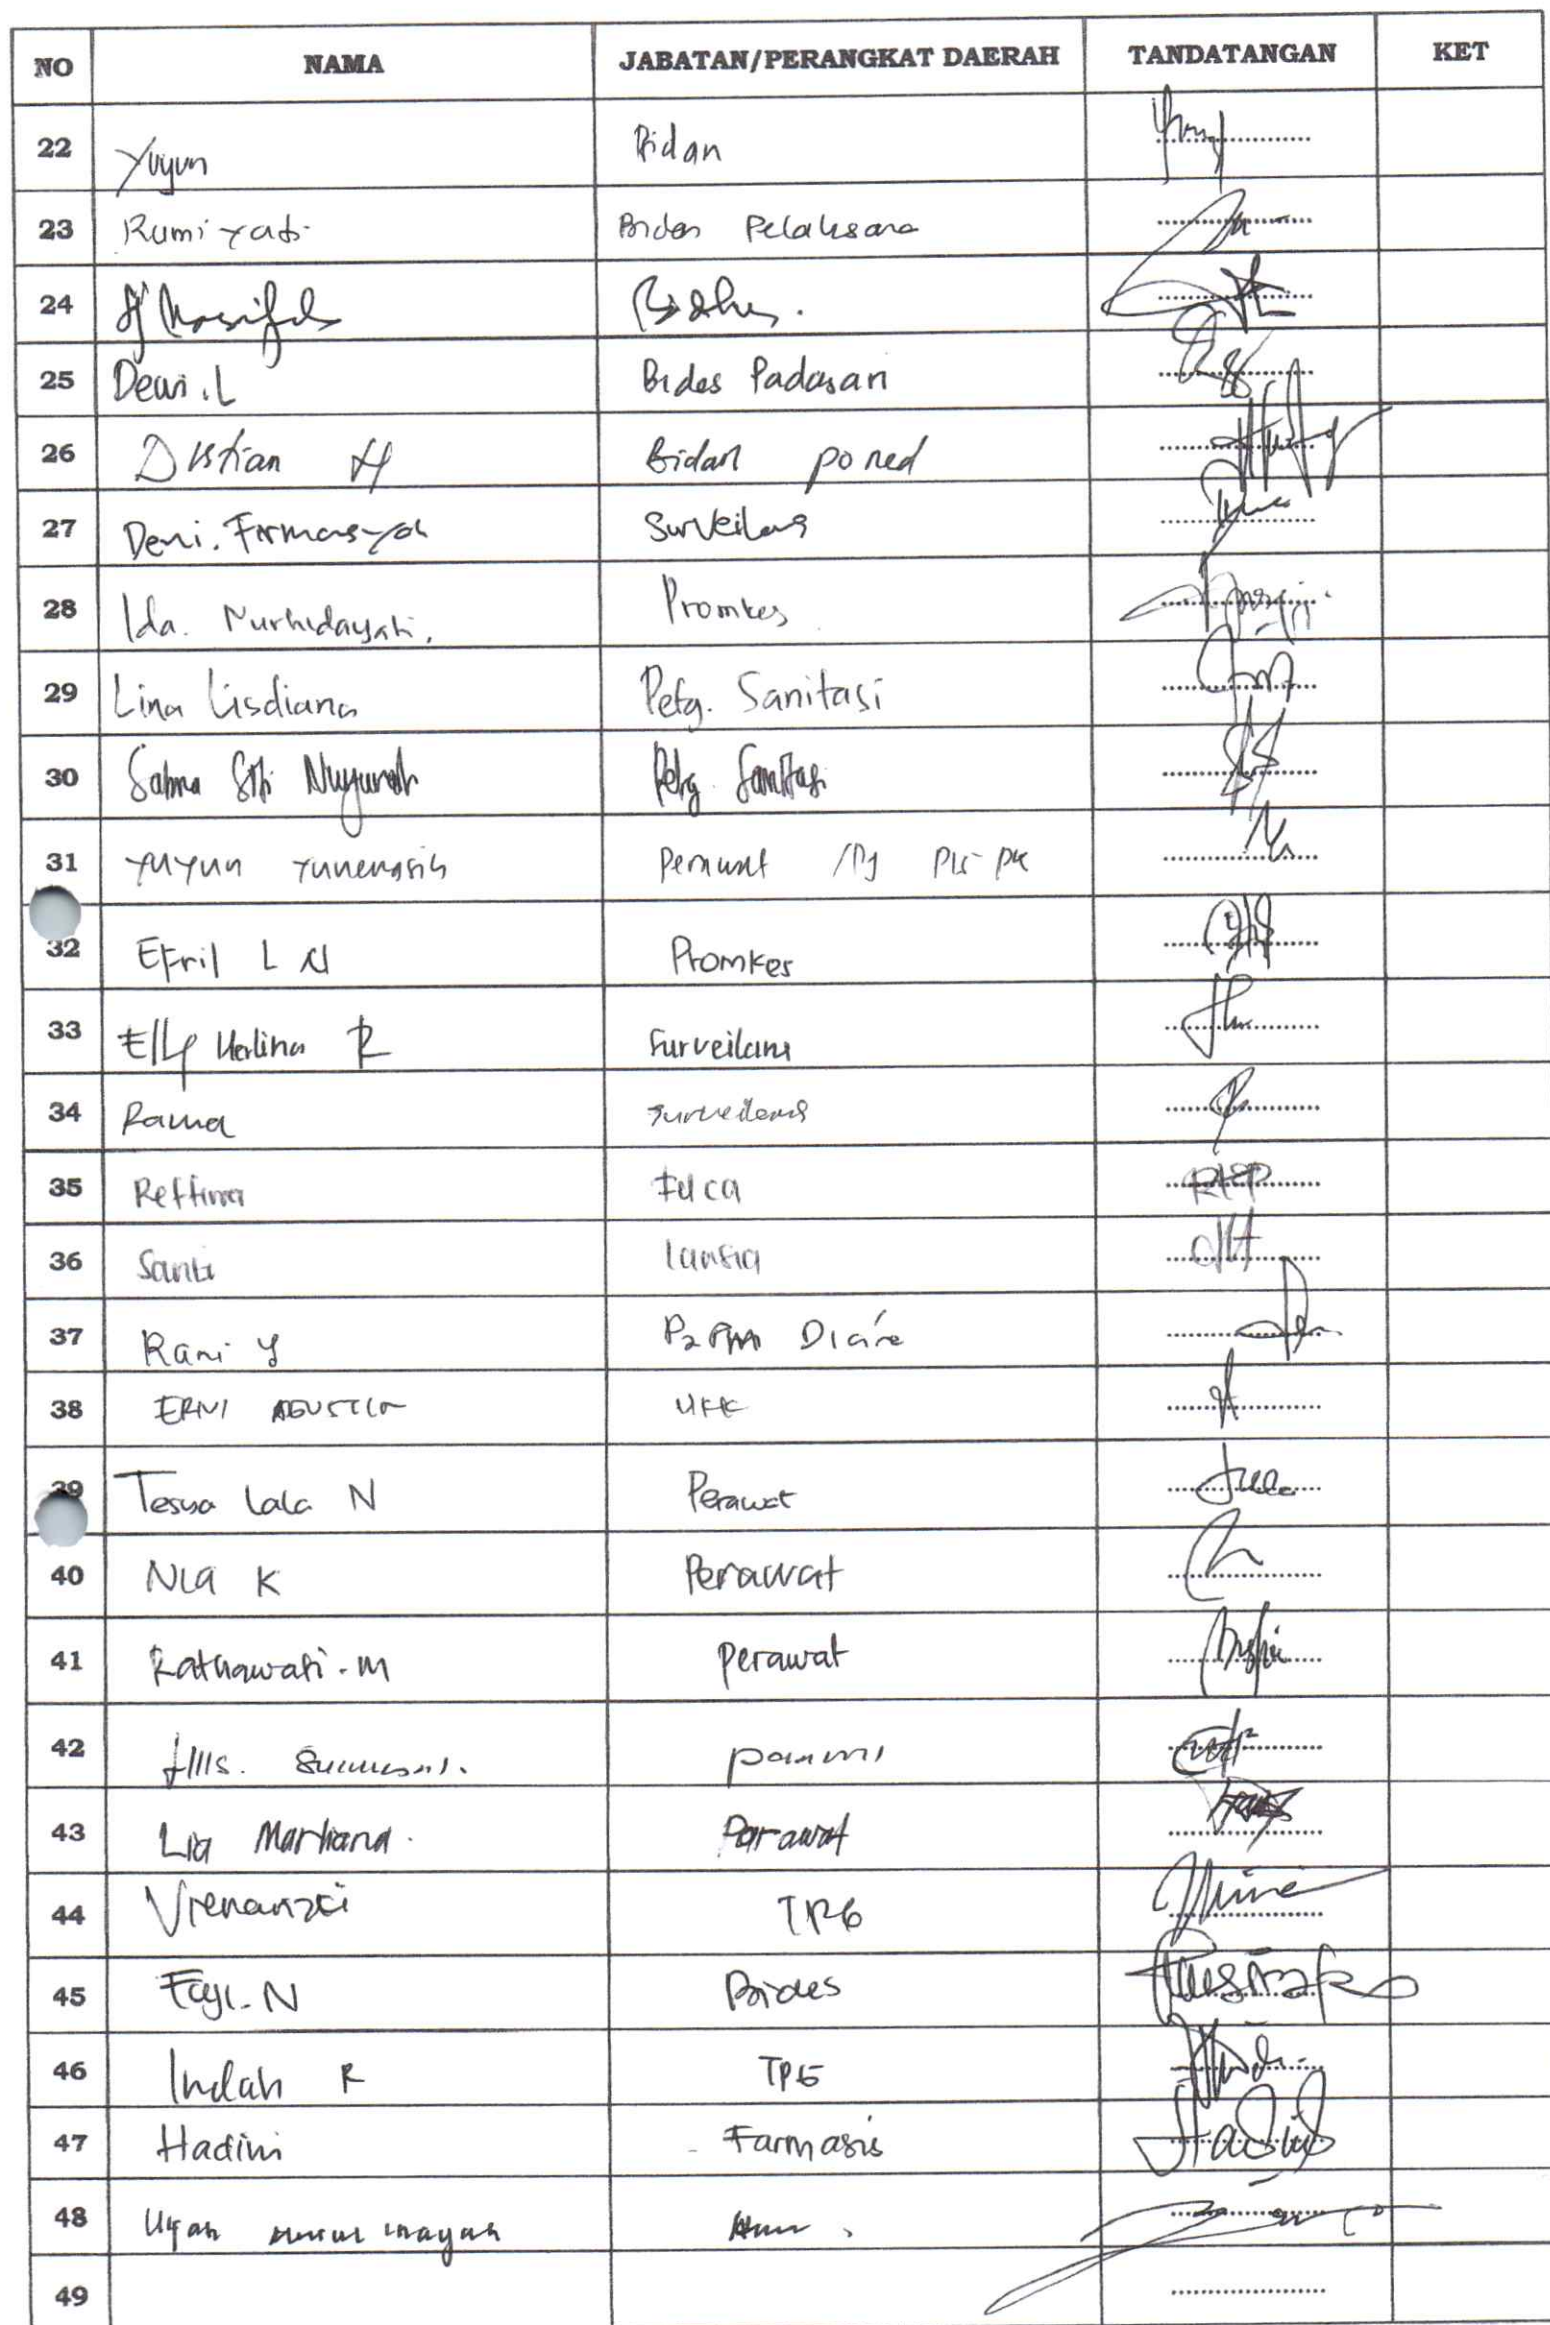 NO NAMA JABATAN/PERANGKAT DAERAH TANDATANGAN KET
22 Yuyun Bidan
23 Rumiyati Bidan Pelaksana
24 Hj
25 Dewi.L Bides Padasari
26 Distian H Bidan poned
27 Deni. Firmansyah Surveilans
28 Ida. Nurhidayati. Promkes
29 Lina Lisdiana Petg. Sanitasi
30 Salma Siti Petg. Sanitasi
31 Yuyun Yunengsih Perawat /PJ
32 Efril L N Promkes
33 Elly Herlina R Surveilans
34 Rama Surveilans
35
36 Santi lansia
37 Rani Y P2PM Diare
38 ERNI AGUSTIN UKK
39 Tessa Lala N Perawat
40 Nia K Perawat
41 Ratnawati.M perawat
42
43 Lia Marliana. Perawat
44 TPG
45 Bides
46 Indah R TPG
47 Hadini Farmasis
48
49